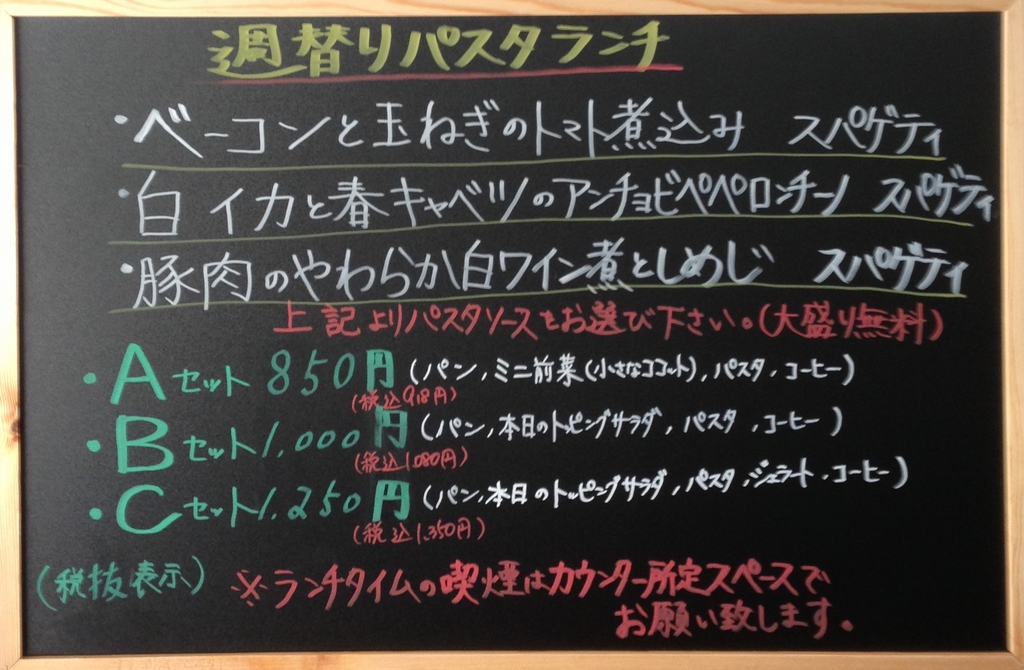 週替りパスタランチ
・ベーコンと玉ねぎのトマト煮込み スパゲティ
・白イカと春キャベツのアンチョビペペロンチーノ スパゲティ
・豚肉のやわらか白ワイン煮としめじ スパゲティ
上記よりパスタソースをお選び下さい。(大盛り無料)
・Aセット 850円 (パン, ミニ前菜(小さなココット), パスタ, コーヒー)
(税込918円)
・Bセット 1,000円 (パン, 本日のトッピングサラダ, パスタ, コーヒー)
(税込1,080円)
・Cセット 1,250円 (パン, 本日のトッピングサラダ, パスタ, ジェラート, コーヒー)
(税込1,350円)
(税抜表示) ※ランチタイムの喫煙はカウンター所定スペースで
お願い致します。